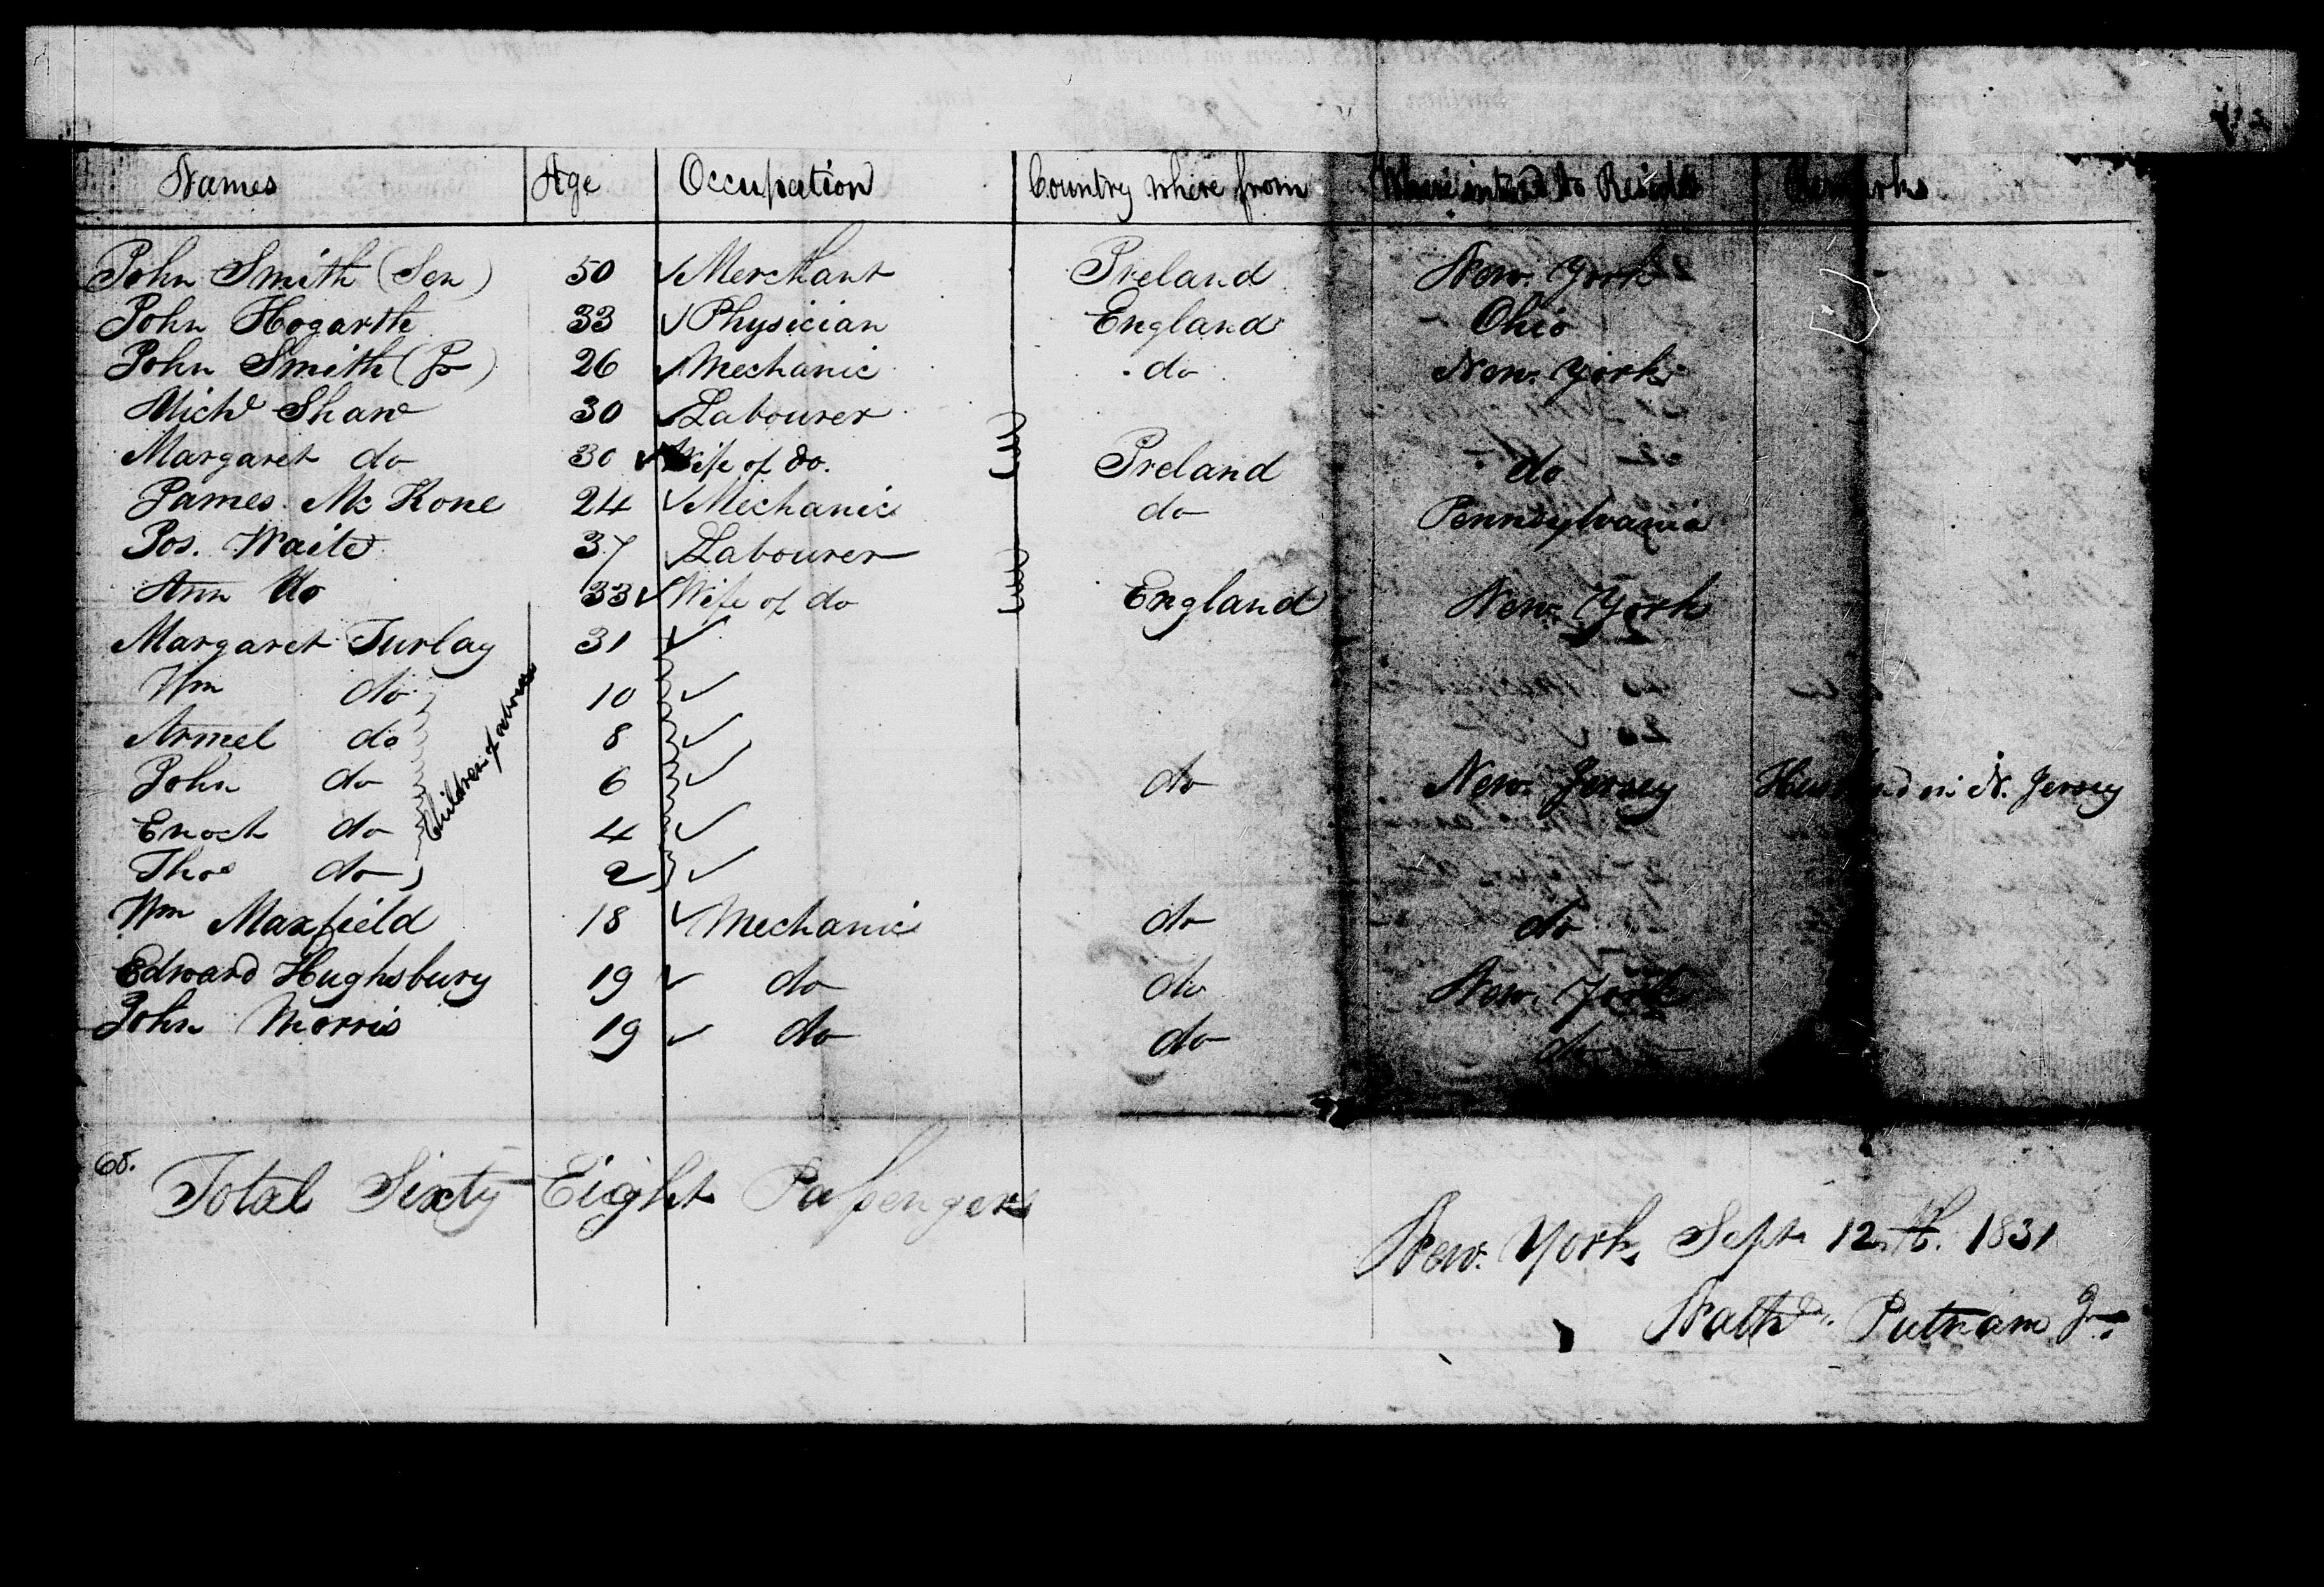 Names Age Occupation Country where from Where intend to Reside Remarks
John Smith (Sen) 50 Merchant Ireland New York
John Hogarth 33 Physician England Ohio
John Smith (Jr) 26 Mechanic do New York
Michl Shaw 30 Labourer
Margaret do 30 Wife of do. Ireland do
James McKone 24 Mechanic do Pennsylvania
Jos. Waite 37 Labourer
Ann do 33 Wife of do England New York
Margaret Turlay 31
Wm do 10
Armel do 8
John do 6 do New Jersey Husband in N. Jersey
Enoch do 4
Thos do 2
Children of above
Wm Maxfield 18 Mechanic do do
Edward Hughsbury 19 do do New York
John Morris 19 do do do
68.
Total Sixty-Eight Passengers
New York, Sept 12th. 1831
Nathl. Putnam Jr.